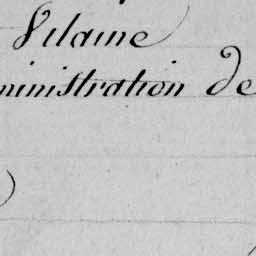 Vilaine
ministration de